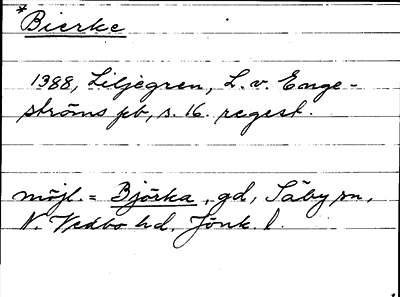 *Bierke
1388, Liljegren, L. v. Enge-
ströms pb, s. 16. regest.
möjl. = Björka, gd, Säby sn,
N. Vedbo hd, Jönk. l.